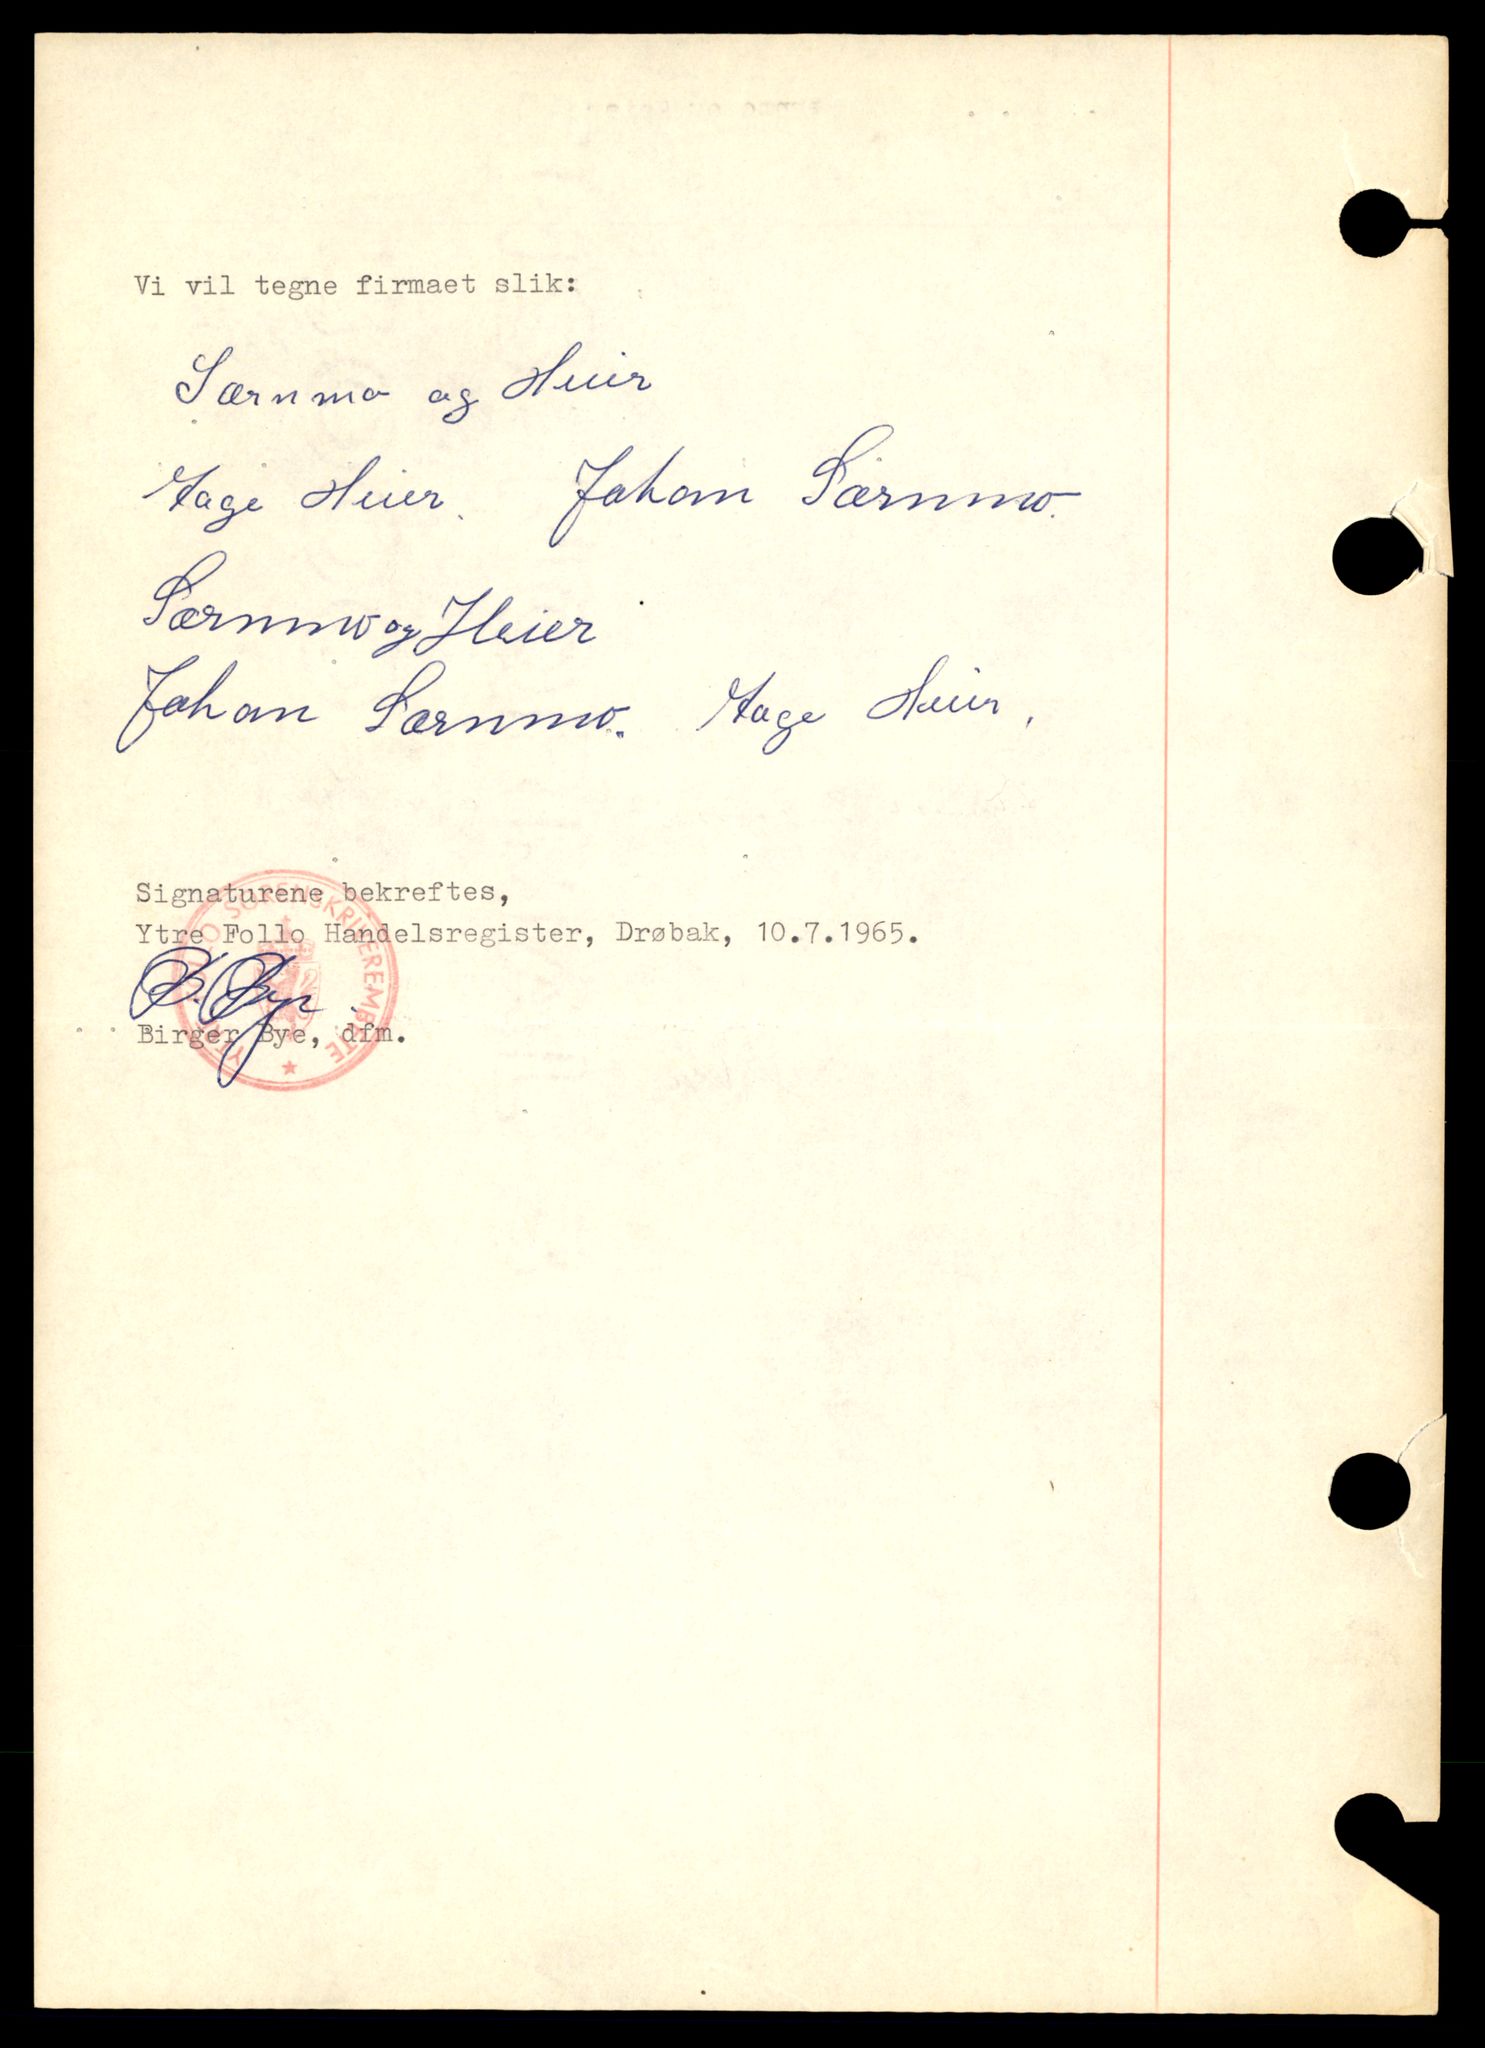 Vi vil tegne firmaet slik:
Særnmo og Heier
Aage Heier. Johan Særnmo.
Særnmo og Heier
Johan Særnmo. Aage Heier.
Signaturene bekreftes,
Ytre Follo Handelsregister, Drøbak, 10.7.1965.
B. Bye
Birger Bye, dfm.
YTRE FOLLO SORENSKRIVEREMBETE